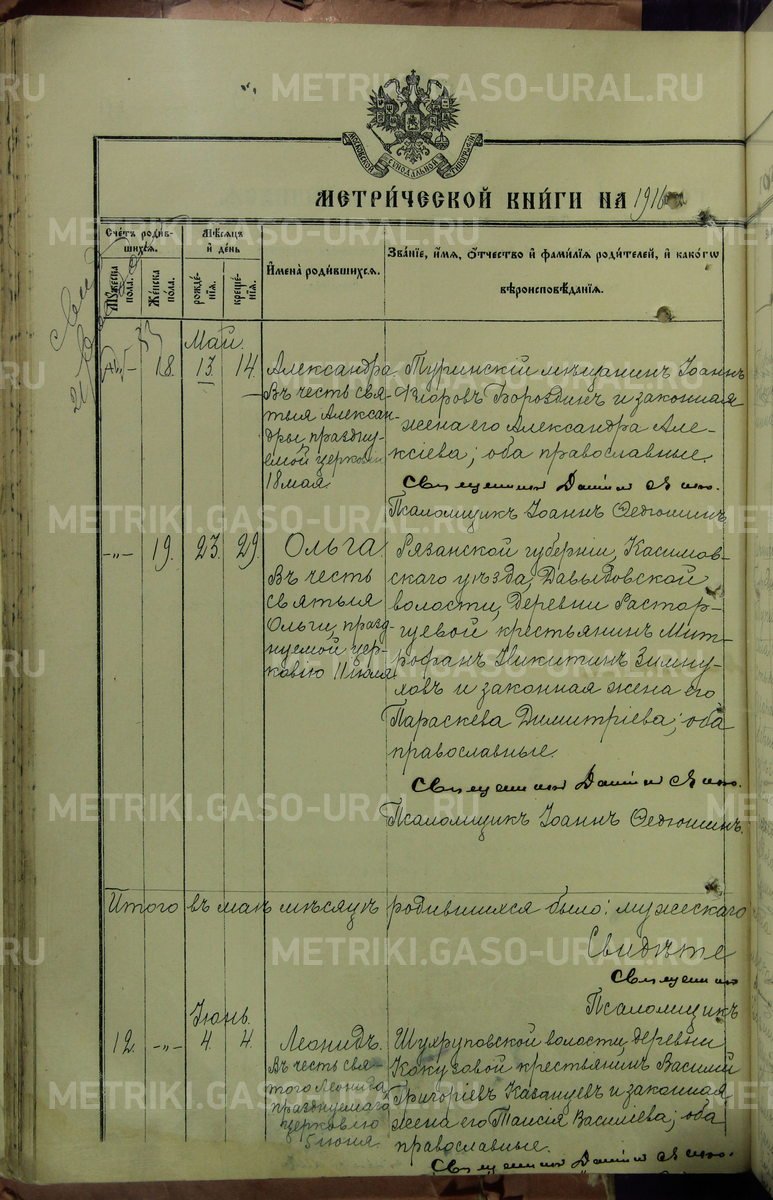 METRIKI.GASO-URAL.RU
МОСКОВСКОЙ СѴНОДАЛЬНОЙ ТИПОГРАФІИ
МЕТРИ́ЧЕСКОЙ КНИ́ГИ НА 1916
Счетъ роди́в-
шихсѧ.
Мꙋ́жеска по́ла.
Же́нска по́ла.
Мѣ́сѧцъ
и҆ де́нь
рожде́-
нїѧ.
креще́-
нїѧ.
И҆мена̀ роди́вшихсѧ.
Зва́нїе, и҆́мѧ, ѻ҆́тчество и҆ фами́лїѧ роди́телей, и҆ како́гѡ
вѣроисповѣ́данїѧ.
Май.
18. 13 14
Александра
Въ честь свя-
тыя Алексан-
дры, праздну-
емой церковію
18 мая.
Туринскій мѣщанинъ Іоаннъ
Бороздинъ и законная
жена его Александра Але-
ксіева; оба православные.
Священникъ Даніилъ
Псаломщикъ Іоаннъ Ѳедюшинъ
—„— 19. 23. 29.
Ольга
Въ честь
святыя
Ольги, празд-
нуемой цер-
ковію 11 іюля
Рязанской губерніи, Касимов-
скаго уѣзда, Давыдовской
волости, деревни Растор-
гуевой крестьянинъ Мит-
рофанъ Никитинъ Зимну-
ховъ и законная жена его
Параскева Димитріева; оба
православные.
Священникъ Даніилъ
Псаломщикъ Іоаннъ Ѳедюшинъ.
Итого въ маѣ мѣсяцѣ родившихся было: мужескаго
Свидѣте
Священник
Псаломщикъ
Іюнь.
12. —„— 4. 4.
Леонидъ.
Въ честь свя-
того Леонида,
празднуемаго
церковію
5 іюня.
волости, деревни
крестьянинъ Василій
Григоріевъ Казанцевъ и законная
жена его Таисія Василіева; оба
православные.
Священникъ Даніилъ